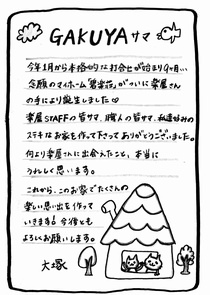 GAKUYAサマ
今年1月から本格的な打合せが始まり9ヶ月い
念願のマイホーム「碧楽荘」がついに楽屋さん
の手により誕生しました♡
楽屋STAFFの皆サマ、職人の皆サマ、私達好みの
ステキなお家を作って下さってありがとうございました。
何より楽屋さんに出会えたこと、本当に
うれしく思います。
これから、このお家でたくさんの
楽しい思い出を作って
いきます♪今後とも
よろしくお願いします。
大塚